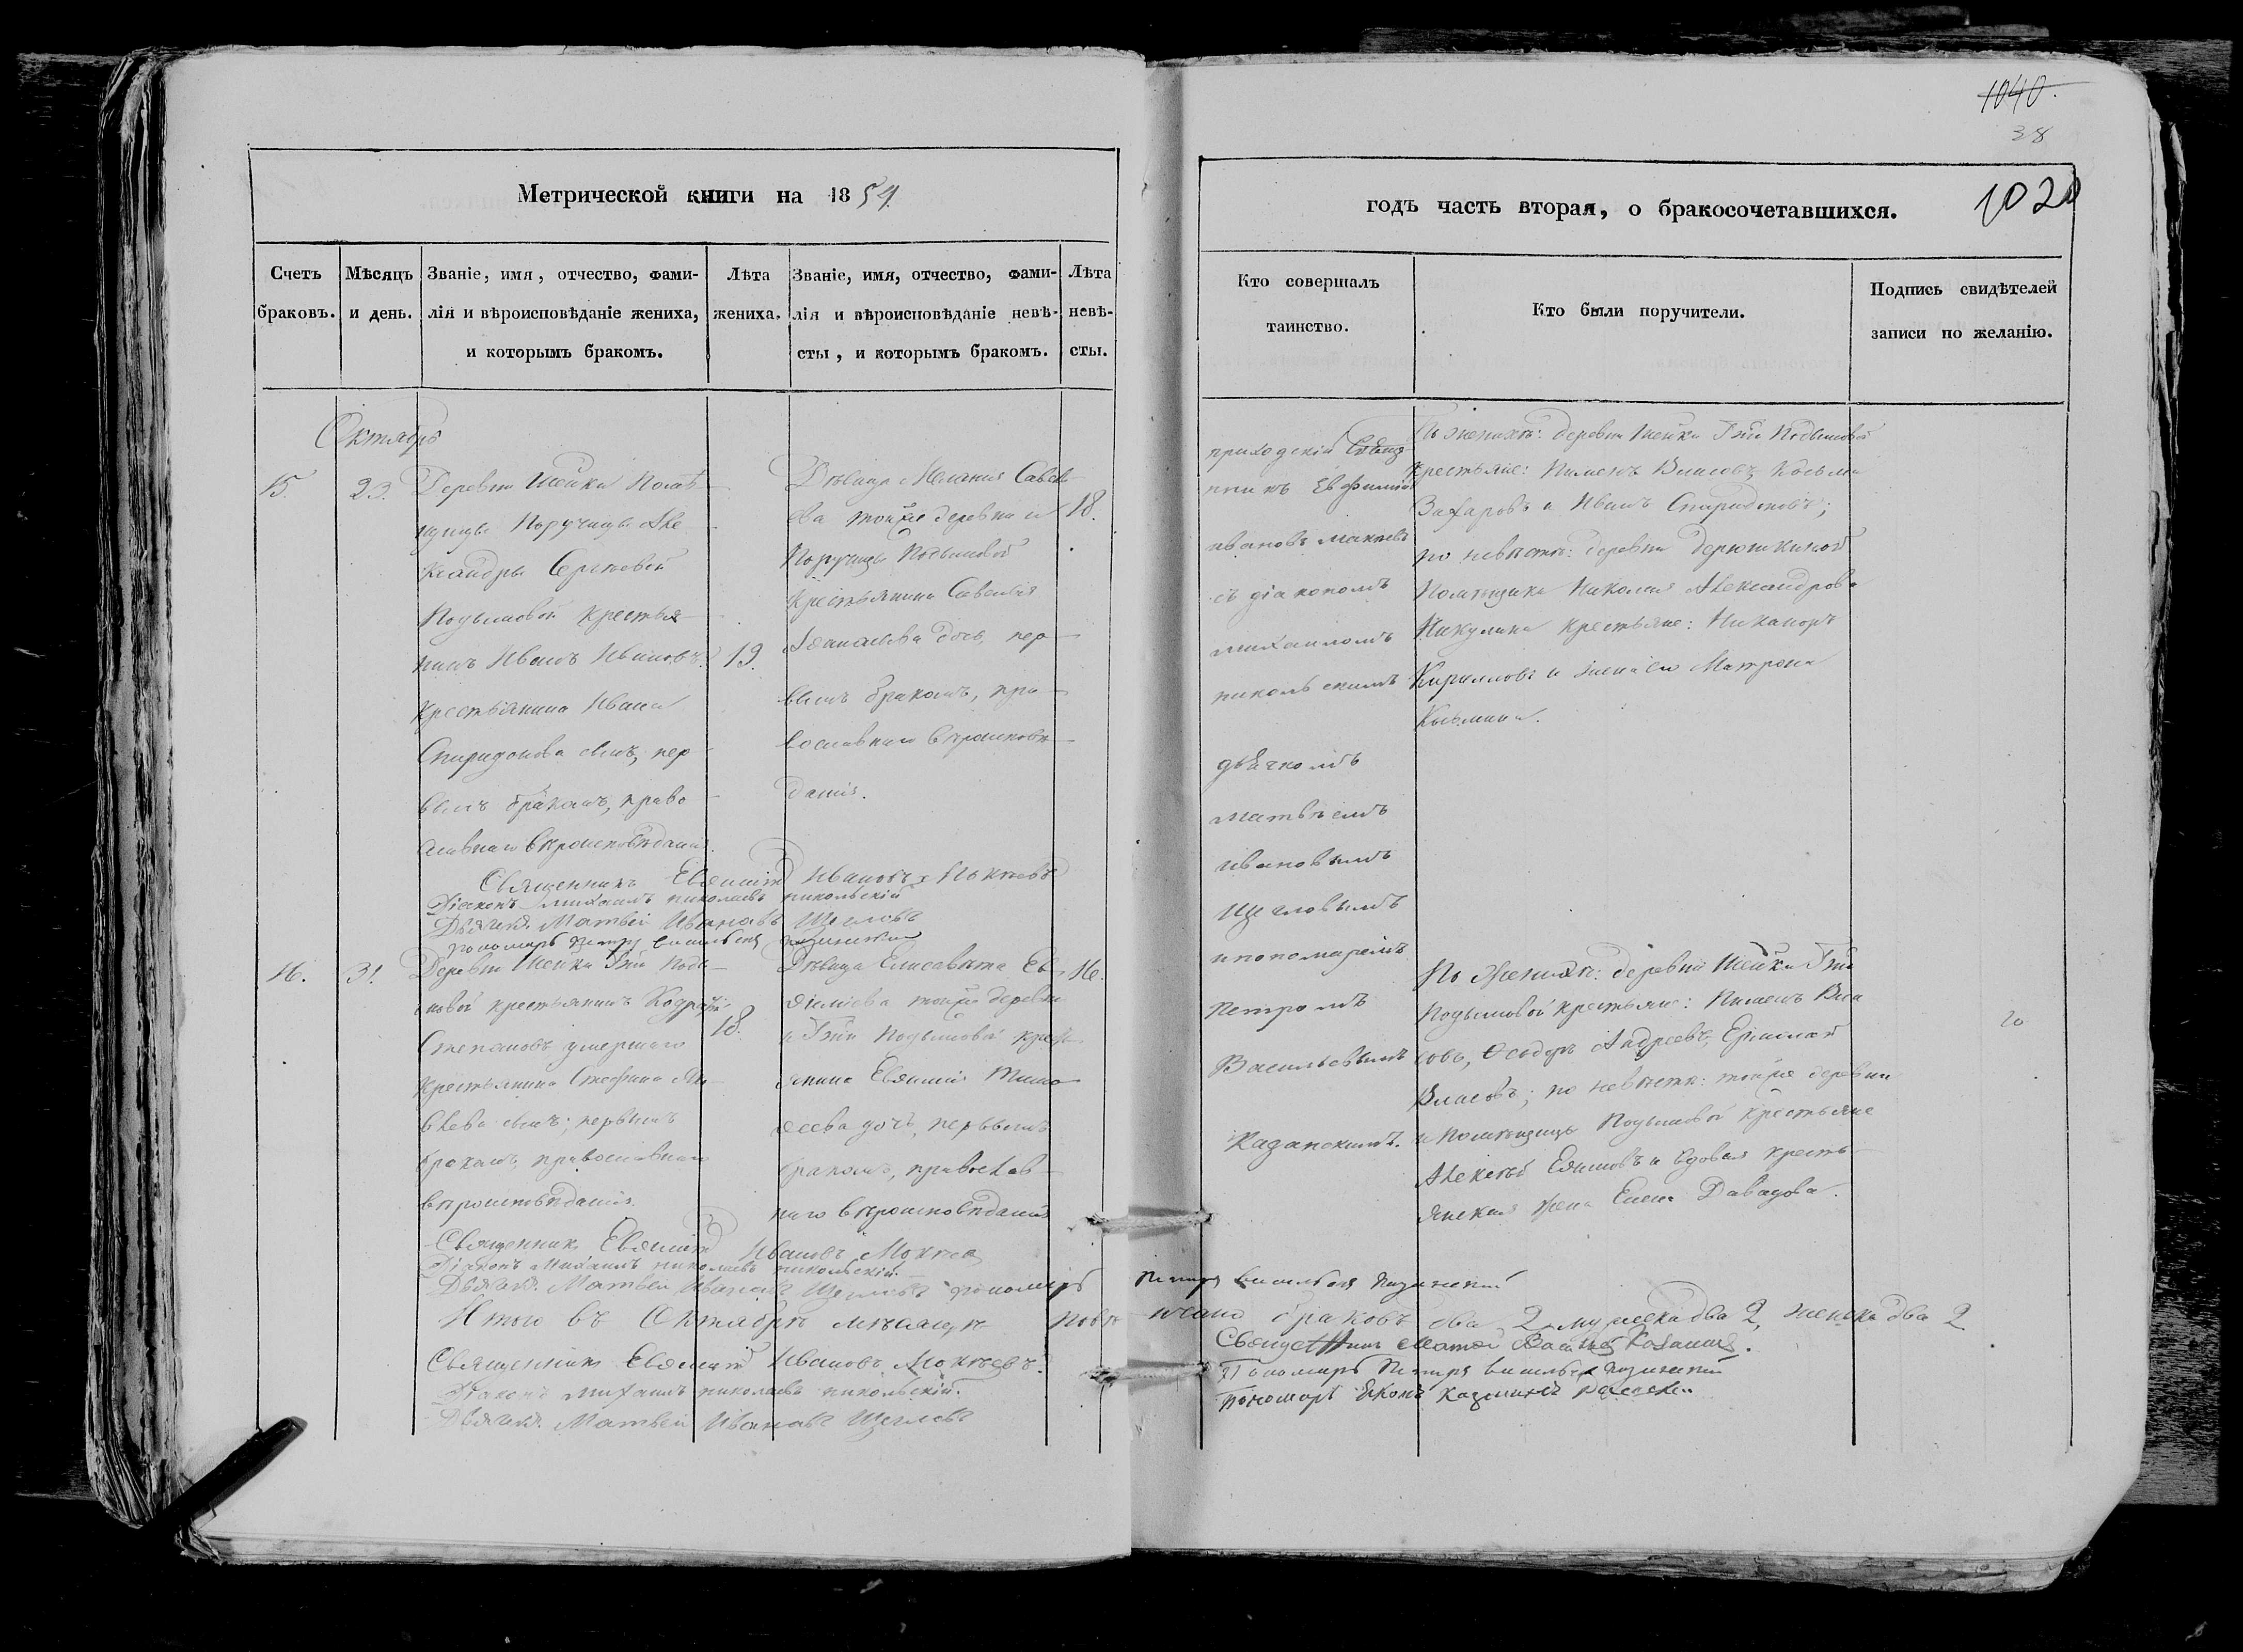 1040.
38
1020
Метрической книги на 1854
годъ часть вторая, о бракосочетавшихся.
Счетъ браковъ.
Мѣсяцъ и день.
Званіе, имя, отчество, фами-
лія и вѣроисповѣданіе жениха,
и которымъ бракомъ.
Лѣта жениха.
Званіе, имя, отчество, фами-
лія и вѣроисповѣданіе невѣ-
сты, и которымъ бракомъ.
Лѣта невѣ-
сты.
Кто совершалъ
таинство.
Кто были поручители.
Подпись свидѣтелей
записи по желанію.
Октябрь
15.
23.
Деревни Шейки Помѣ
щицы Поручицы Але
ксандры Сергѣевой
Подымовой крестья
нинъ Иванъ Ивановъ.
крестьянина Ивана
Спиридонова сынъ, пер
вымъ бракомъ, право
славнаго вѣроисповѣданія.
19.
Дѣвица Меланія Савель
ева тойже деревни и
Поручицы Подымовой
крестьянина Савелья
дочь, пер
вымъ бракомъ, пра
вославнаго вѣроисповѣ
данія.
18.
приходскій Свяще
нникъ Евфимій
Ивановъ
съ діакономъ
михаиломъ
никольскимъ
дьячкомъ
матвѣемъ
ивановымъ
Щегловымъ
и пономаремъ
Петромъ
Васильевымъ
Казанскимъ.
По женихѣ: деревни Шейки Гжи Подымовой
крестьяне: Пименъ Власовъ, Косьма
Захаровъ и Иванъ Спиридоновъ;
по невѣстѣ: деревни Дерюшкиной
Помѣщика Николая Александрова
Никулина крестьяне: Никаноръ
Кирилловъ и жена его Матрона
Козьмина.
Священникъ Евфимій Ивановъ
Діаконъ Михаилъ николаевъ никольскій
Дьячекъ Матвей Ивановъ Щегловъ
пономарь петръ васильевъ
16.
31.
Деревни Шейки Гжи Поды
мовой крестьянинъ Кодратій
Степановъ умершаго
крестьянина Стефана
сынъ; первымъ
бракомъ, православнаго
вѣроисповѣданія.
18.
Дѣвица Елисавета Ев
фиміева тойже деревни
и Гжи Подымовой крест
янина Евфимія Тимо
феева дочь, первымъ
бракомъ, православ
наго вѣроисповѣданія
16.
По женихѣ: деревни Шейки Гжи
Подымовой крестьяне: Пименъ Вла
совъ, Феодоръ Андреевъ, Ермолай
Власовъ; по невѣстѣ: тойже деревни
и помѣщицы Подымовой крестьяне
Алексѣй Ефимовъ и вдовая кресть
янская жена Елена Давыдова.
Священникъ Евфимій Ивановъ
Діаконъ Михаилъ николаевъ никольскій.
Дьячекъ Матвей Ивановъ Щегловъ пономарь
Петръ васильевъ
Итого въ Октябрѣ мѣсяцѣ повѣнчано браковъ два 2 мужеска два 2, женска два 2
Священникъ Евфимій Ивановъ
Діаконъ михаилъ николаевъ никольскій.
Дьячекъ Матвей Ивановъ Щегловъ
Пономарь Петръ васильевъ